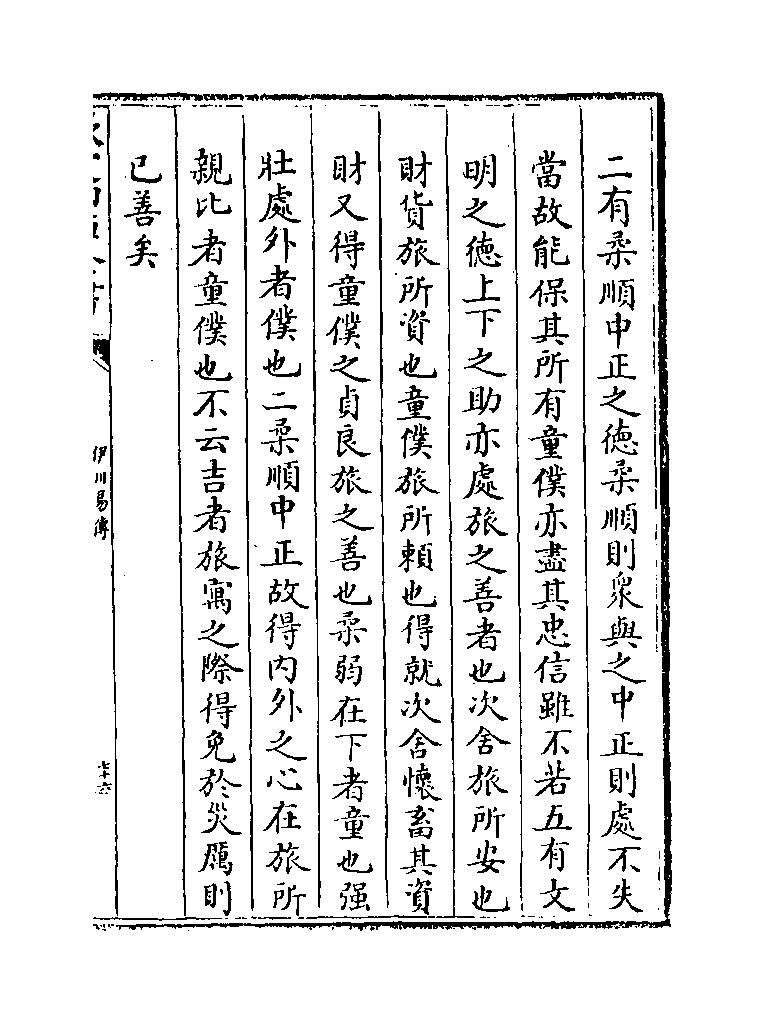 二有柔順中正之徳柔順則衆與之中正則處不失
當故能保其所有童僕亦盡其忠信雖不若五有文
明之徳上下之助亦處旅之善者也次舍旅所安也
財貨旅所資也童僕旅所賴也得就次舍懷畜其資
財又得童僕之貞良旅之善也柔弱在下者童也强
壯處外者僕也二柔順中正故得内外之心在旅所
親比者童僕也不云吉者旅寓之際得免於災厲則
已善矣
伊川易傳
七十六